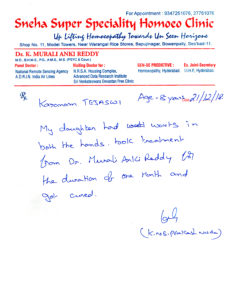 For Appointment : 9347251076, 27751076
Sneha Super Speciality Homoeo Clinic
Up Lifting Homoeopathy Towards Un Seen Horizons
Shop No. 11, Model Towers, Near Warangal Rice Stores, Bapujinagar, Bowenpally, Sec'bad-11.
Dr. K. MURALI ANKI REDDY
Panel Doctor :
National Remote Sensing Agency
A.D.R.I.N. India Air Lines
Visiting Doctor for :
N.R.S.A. Housing Complex,
Advanced Data Research Institute
Sri Venkateswara Devasthan Free Clinic
Homoeopathy, Hyderabad
Ex. Joint-Secretary
I.I.H.P., Hyderabad
Age - 8 years 21/12/12
Karanam TEJASWI
My daughter had warts in
both the hands. took treatment
from Dr. Murali Anki Reddy for
the duration of one month and
got cured.